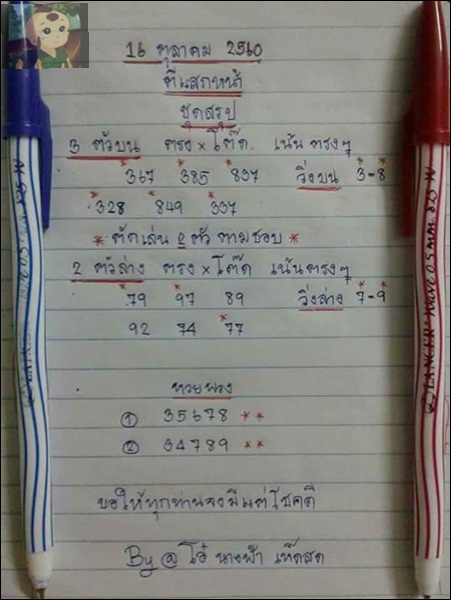 16 ตุลาคม 2560
ตีแสกหน้า
ชุดสรุป
3 ตัวบน ตรง × โต๊ด. เน้น ตรงๆ
*367 *385 *837 วิ่งบน *3-*8
*328 *849 *337
* ตัดเล่น 2 ตัว ตามชอบ *
2 ตัวล่าง ตรง × โต๊ด เน้นตรงๆ
*79 *97 89 วิ่งล่าง *7-*9
92 74 *77
หวยซอง
① 35678 **
② 34789 **
ขอให้ทุกท่านจงมีแต่โชคดี
By @ โอ๋ นางฟ้า เห็ดสด
LANCER
0.5 mm 825 W